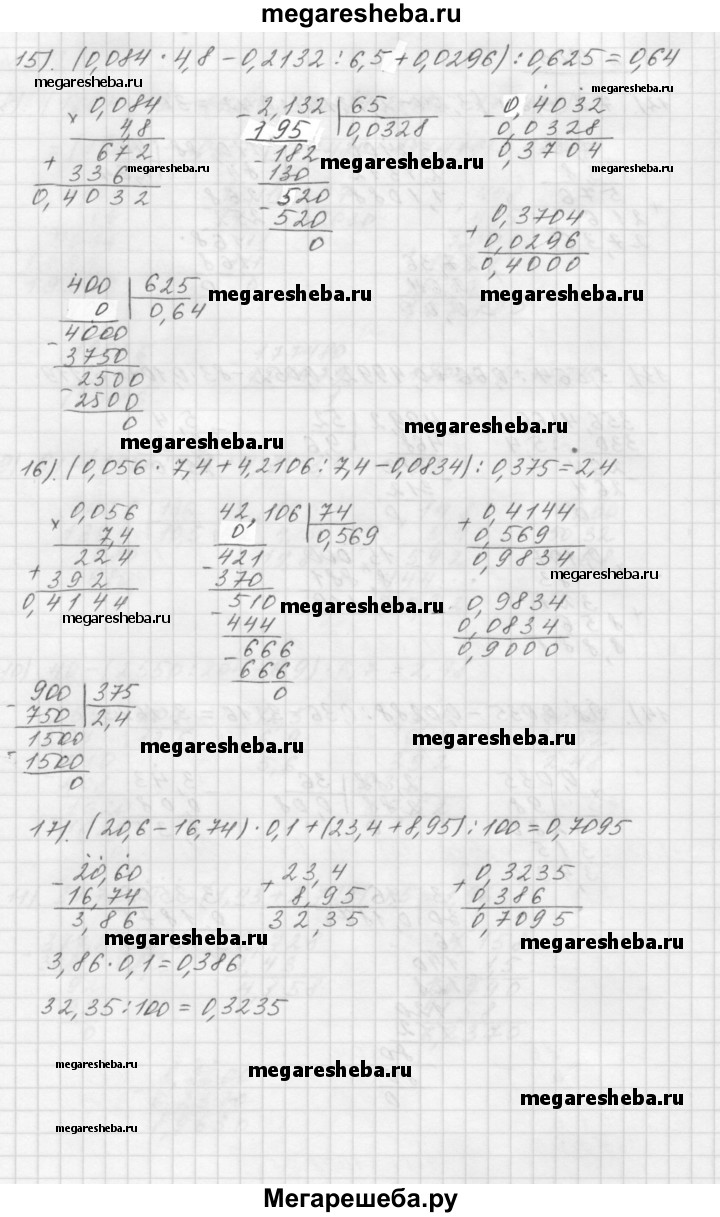 megaresheba.ru
15). (0,084 · 4,8 − 0,2132 : 6,5 + 0,0296) : 0,625 = 0,64
megaresheba.ru
megaresheba.ru
× 0,084
4,8
+ 672
336
0,4032
− 2,132 | 65
195 | 0,0328
− 182
130
− 520
520
0
megaresheba.ru
− 0,4032
0,0328
0,3704
megaresheba.ru
+ 0,3704
0,0296
0,4000
megaresheba.ru
400 | 625
0 | 0,64
− 4000
3750
− 2500
2500
0
megaresheba.ru
megaresheba.ru
megaresheba.ru
16). (0,056 · 7,4 + 4,2106 : 7,4 − 0,0834) : 0,375 = 2,4
× 0,056
7,4
+ 224
392
0,4144
megaresheba.ru
42,106 | 74
0 | 0,569
− 421
370
− 510
444
− 666
666
0
megaresheba.ru
+ 0,4144
0,569
0,9834
megaresheba.ru
− 0,9834
0,0834
0,9000
− 900 | 375
750 | 2,4
− 1500
1500
0
megaresheba.ru
megaresheba.ru
17). (20,6 − 16,74) · 0,1 + (23,4 + 8,95) : 100 = 0,7095
− 20,60
16,74
3,86
+ 23,4
8,95
32,35
+ 0,3235
0,386
0,7095
megaresheba.ru
megaresheba.ru
3,86 · 0,1 = 0,386
32,35 : 100 = 0,3235
megaresheba.ru
megaresheba.ru
megaresheba.ru
megaresheba.ru
Мегарешеба.ру